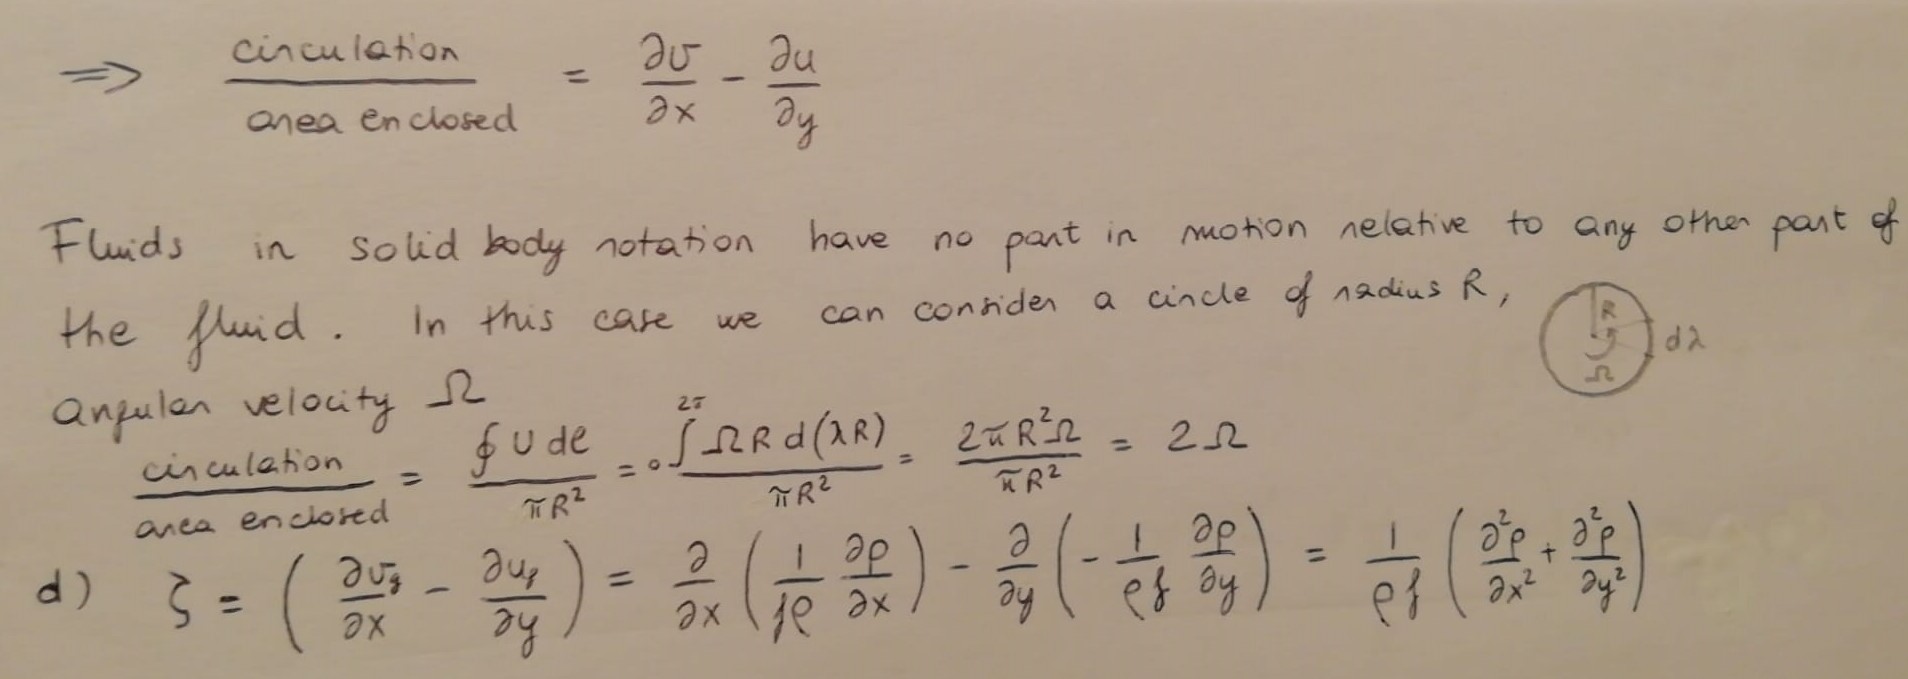 ⇒ circulation / area enclosed = ∂v/∂x - ∂u/∂y
Fluids in solid body rotation have no part in motion relative to any other part of
the fluid. In this case we can consider a circle of radius R,
R dλ Ω
angular velocity Ω
circulation / area enclosed = ∮ U dl / πR² = ₀∫²π ΩR d(λR) / πR² = 2πR²Ω / πR² = 2Ω
d) ζ = (∂v_g/∂x - ∂u_g/∂y) = ∂/∂x (1/fρ ∂p/∂x) - ∂/∂y (- 1/ρf ∂p/∂y) = 1/ρf (∂²p/∂x² + ∂²p/∂y²)